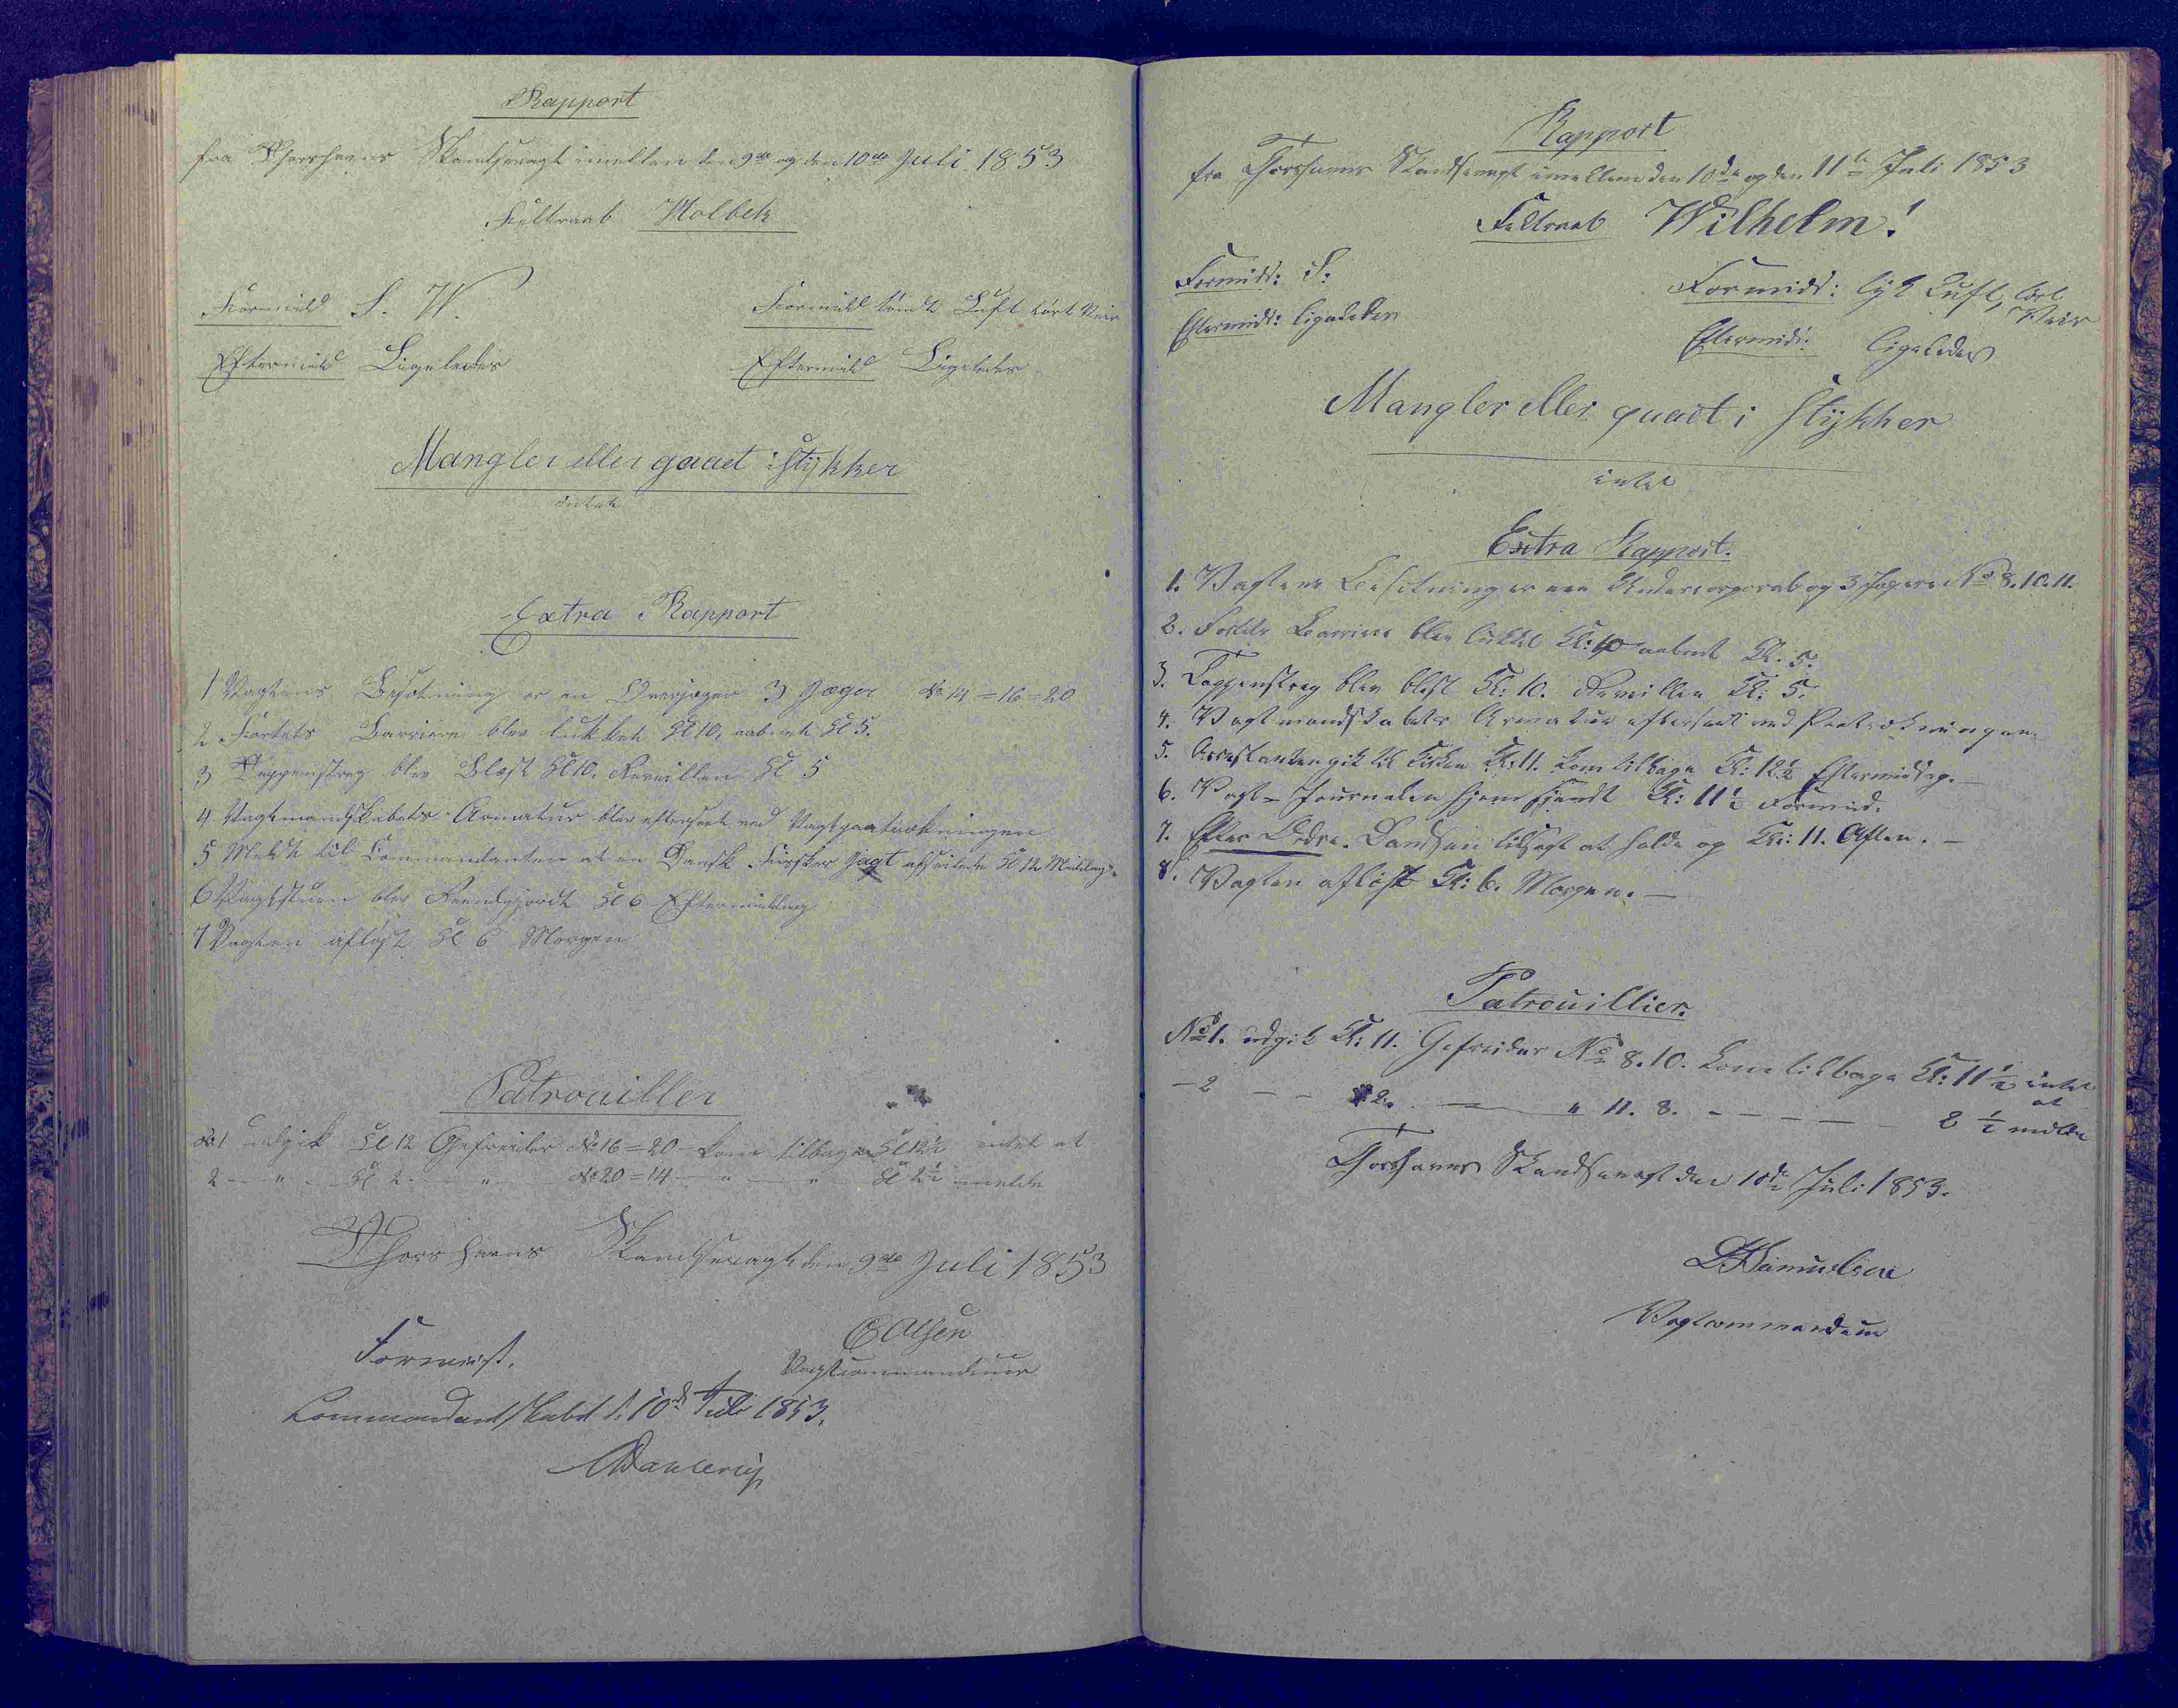 Rapport
fra Thorshavns Skandsevagt imellem den 9de og den 10de Juli 1853
Feltraab Holbek
Formidd S. W.
Formidd tÿndt Luft tört Veir
Eftermidd Ligeledes
Eftermidd Ligeledes
Mangler eller gaaet i stÿkker
intet
Extra Rapport
1 Vagtens Besætning er en Overjæger 3 Jæger No 14 = 16 = 20
2 Fortets Barriere blev lukket Kl 10, aabnet Kl 5.
3 Tappenstreg blev Blæst Kl 10. Reveillen Kl 5
4 Vagtmandskabets Armatur blev efterseet ved Vagtpaatrækningen
5 Meldt til Commandanten at en Dansk Fisker Jagt afseilede Kl 12 Middag
6 Vagtstuen blev Reengjordt Kl 6 Eftermiddag
7 Vagten aflöst Kl 6 Morgen
Patrouiller
No 1 udgik Kl 12 Gefreider No 16 = 20 kom tilbage Kl 12½ intet at
2 — " — Kl 2 — " — No 20 = 14 — " — " — Kl 2½ melde
Thorshavns Skandsevagt den 9de Juli 1853
Olsen
Vagtcommandeur
Foreviist.
Commandantskabet d. 10de Juli 1853.
Dahlerup
Rapport
fra Thorshavns Skandsevagt imellem den 10de og den 11te Juli 1853
Feltraab Wilhelm!
Formidd: S:
Formidd: tÿk Luft, tört Veir
Eftermidd: ligeledes
Eftermidd: ligeledes
Mangler eller gaaet i stÿkker
intet
Extra Rapport.
1. Vagtens Besetning er en Undercorporal og 3 Jægere No 8. 10. 11.
2. Fortets Barriere blev lukket Kl: 10 aabnet Kl. 5.
3. Tappenstreg blev blest Kl: 10. Reveillen Kl: 5.
4. Vagtmandskabets Armatur efterseet ved Paatrækningen.
5. Arrestanten gik til Kirken Kl: 11. kom tilbage Kl: 12½ Eftermiddag. —
6. Vagt-Journalen hjemsendt Kl: 11½ Formid.
7. Efter Ordre. Dandsen tilsagt at holde op Kl: 11. Aften. —
8. Vagten aflöst Kl: 6. Morgen. —
Patrouillier.
No 1. udgik Kl: 11. Gefreider No 8. 10. kom tilbage Kl: 11½ intet at
— 2 — — 2. — " 11. 8. — — — — 2½ melde
Thorshavns Skandsevagt den 10de Juli 1853.
Samuelsen
Vagtcommandeur